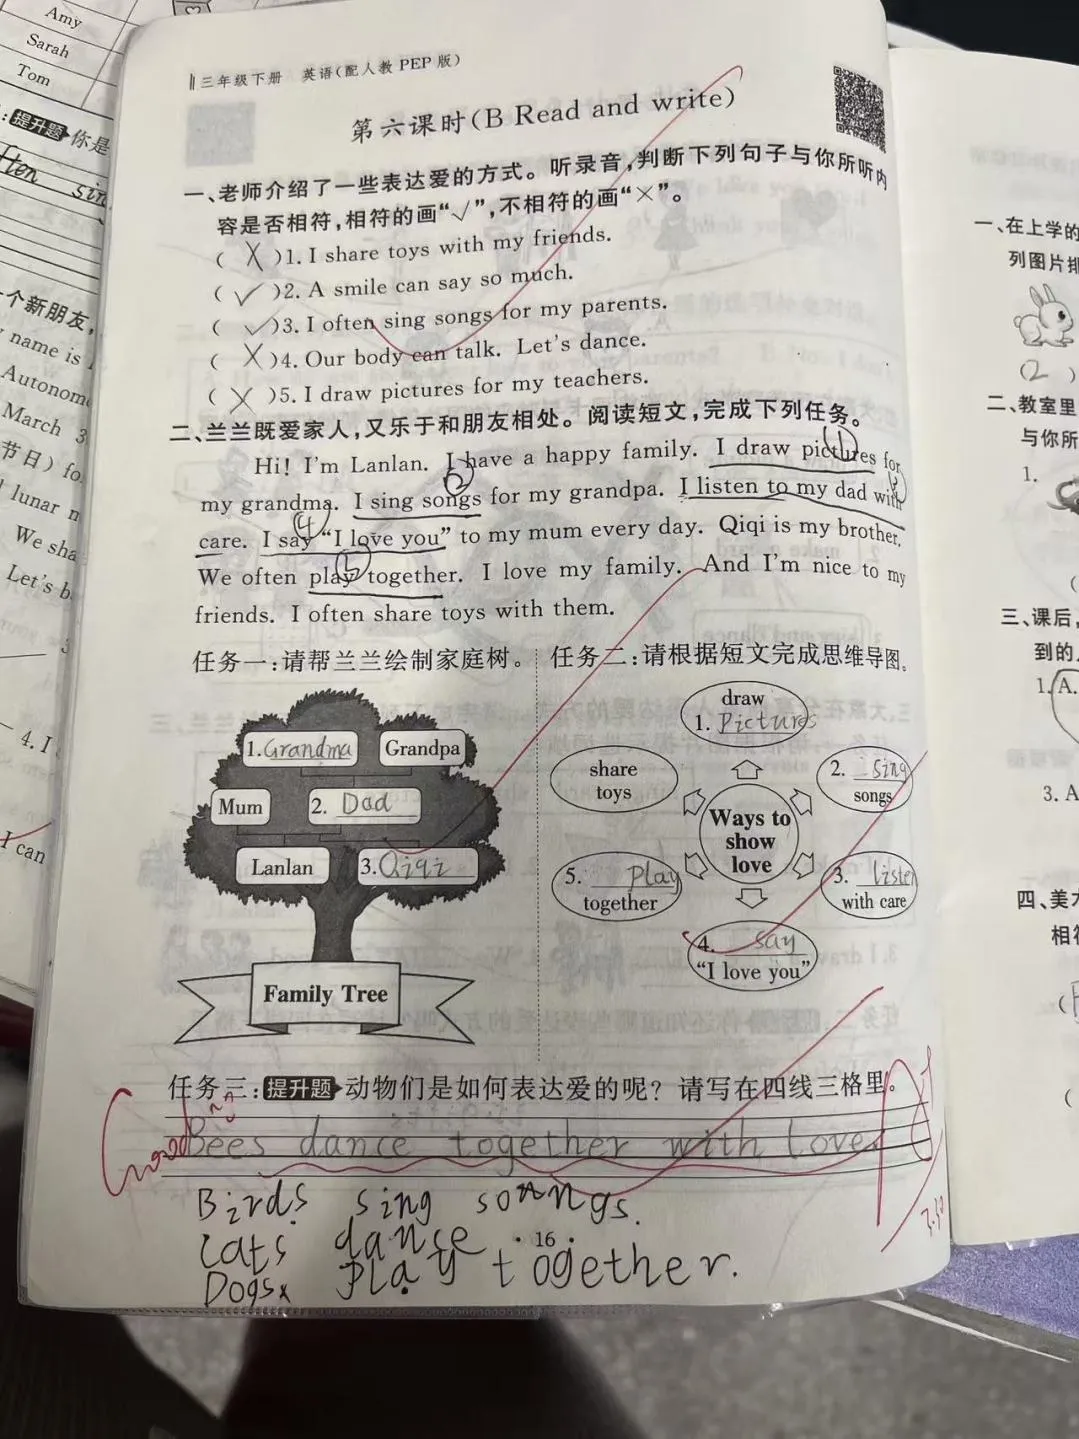 Amy
Sarah
Tom
提升题 你是
sin
个新朋友,
name is
Autonom
March 3
节日) fo
lunar n
We sha
Let's b
4. I
I can
三年级下册 英语(配人教 PEP 版)
第六课时(B Read and write)
一、老师介绍了一些表达爱的方式。听录音,判断下列句子与你所听内
容是否相符,相符的画“√”,不相符的画“×”。
( X )1. I share toys with my friends.
( √ )2. A smile can say so much.
( √ )3. I often sing songs for my parents.
( X )4. Our body can talk. Let's dance.
( X )5. I draw pictures for my teachers.
二、兰兰既爱家人,又乐于和朋友相处。阅读短文,完成下列任务。
Hi! I'm Lanlan. I have a happy family. I draw pictures for
my grandma. I sing songs for my grandpa. I listen to my dad with
care. I say “I love you” to my mum every day. Qiqi is my brother.
We often play together. I love my family. And I'm nice to my
friends. I often share toys with them.
任务一:请帮兰兰绘制家庭树。
1. Grandma
Grandpa
Mum
2. Dad
Lanlan
3. Qiqi
Family Tree
任务二:请根据短文完成思维导图。
draw
1. Pictures
share
toys
2. sing
songs
Ways to
show
love
5. play
together
3. listen
with care
4. say
“I love you”
任务三: 提升题 动物们是如何表达爱的呢? 请写在四线三格里。
Good
Bees dance together with love.
Birds sing songs.
Cats danse
·16·
Dogs play together.
3.30
一、在上学的
列图片排
(2 )
二、教室里
与你所
1.
三、课后,
到的
1. A.
3. A
四、美术
相符